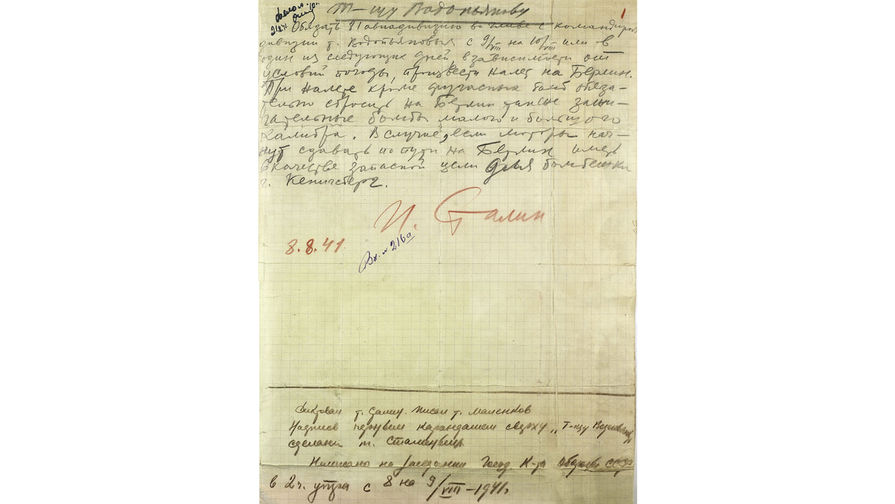 Т-щу Водопьянову
Обязать 81 авиадивизию во главе с командиром
дивизии т. Водопьяновым с 9/VIII на 10/VIII или в
один из следующих дней, в зависимости от
условий погоды, произвести налет на Берлин.
При налете кроме фугасных бомб обяза-
тельно сбросить на Берлин также зажи-
гательные бомбы малого и большого
калибра. В случае, если моторы нач-
нут сдавать по пути на Берлин иметь
в качестве запасной цели для бомбежки
г. Кенигсберг.
И. Сталин
8.8.41
Вх. № 216
Диктовал т. Сталин. Писал т. Маленков
Надпись первым карандашом сверху „Т-щу Водопьянову
сделана т. Сталиным
Написано на заседании Госуд. К-та Обороны СССР
в 2 ч. утра с 8 на 9/VIII-1941г.